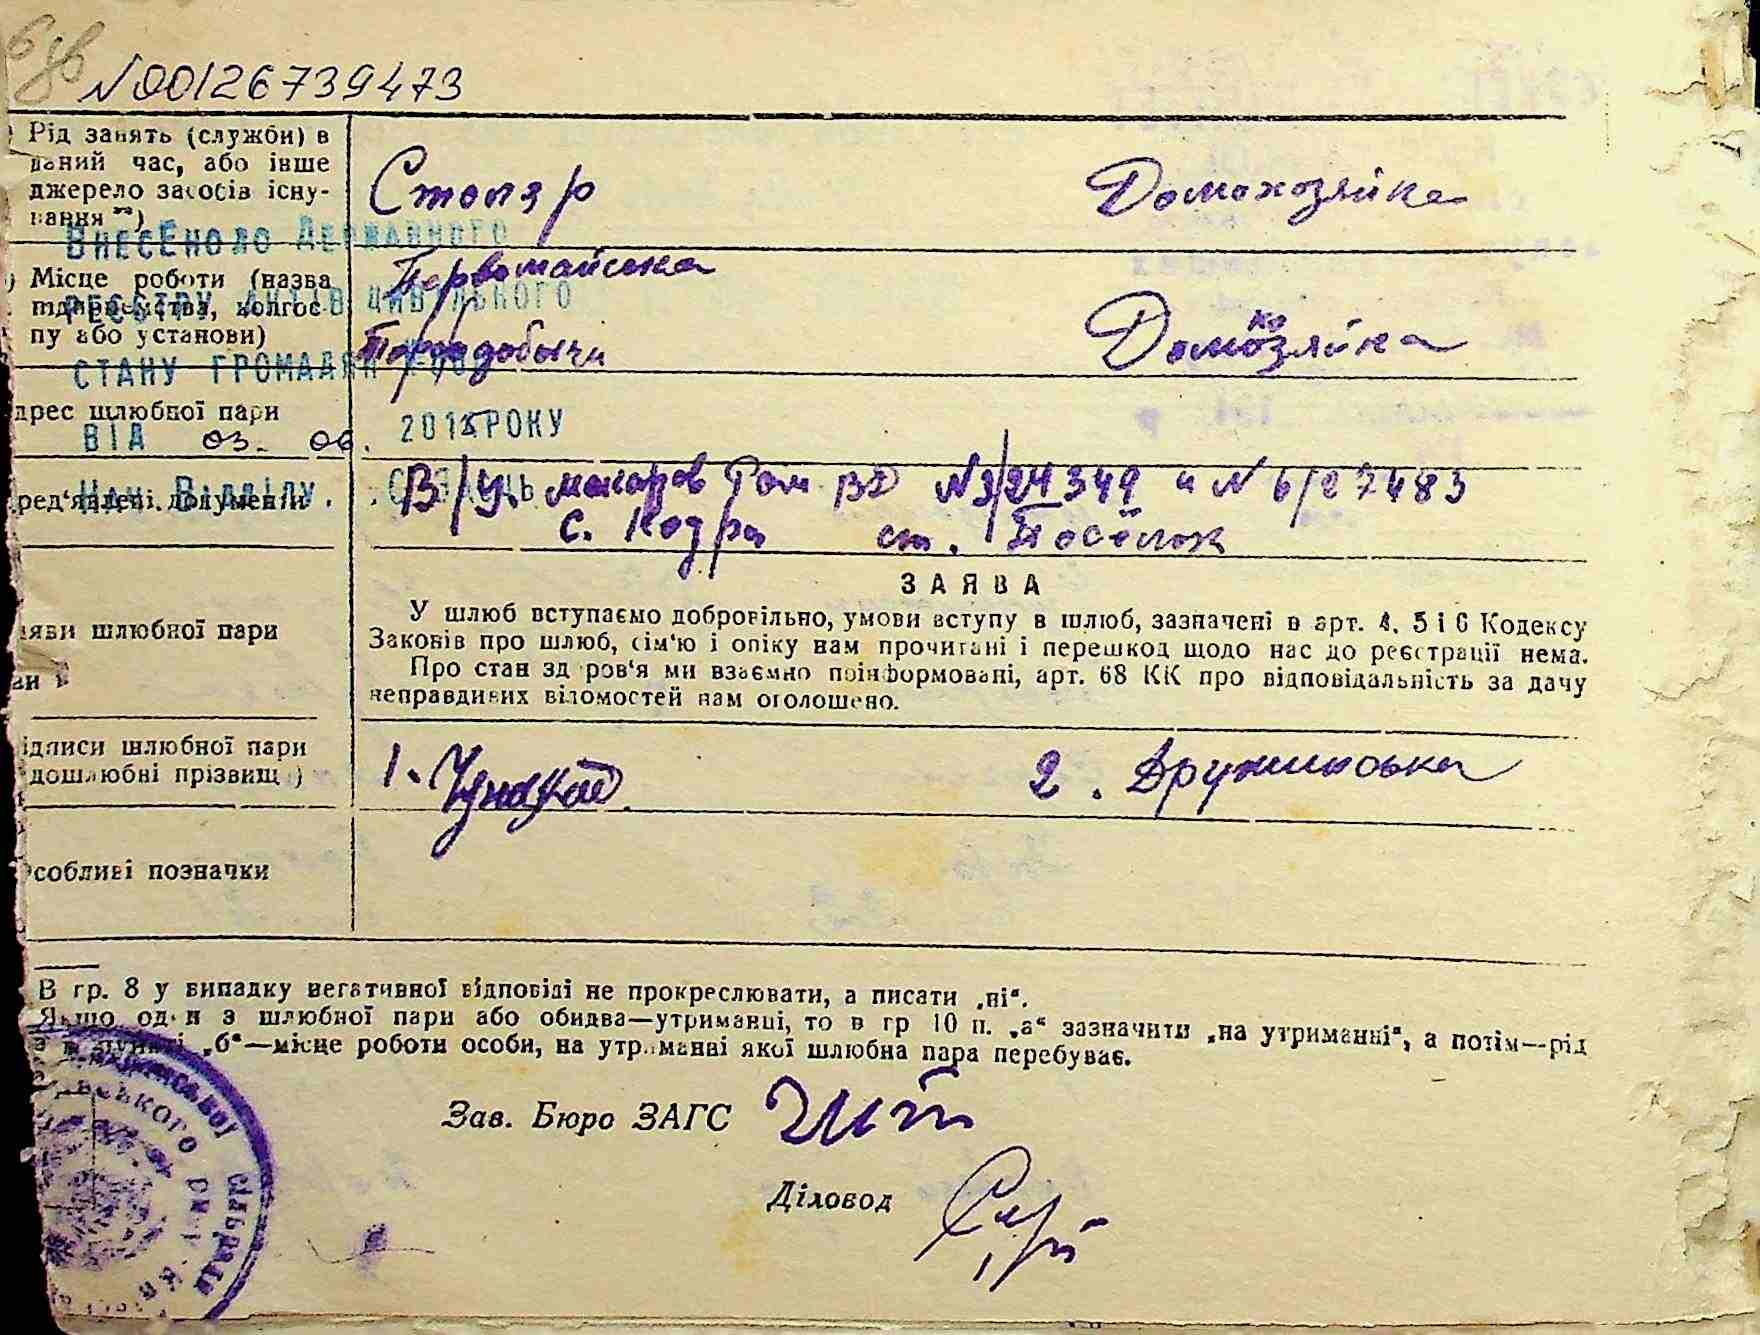 N00126739473
Рід занять (служби) в
даний час, або інше
джерело засобів існу-
вання **)
Столяр
Домохозяйка
ВНЕСЕНО ДО ДЕРЖАВНОГО
РЕЄСТРУ АКТІВ ЦИВІЛЬНОГО
СТАНУ ГРОМАДЯН
ВІД 03. 06. 201 РОКУ
НАЧ ВІДДІЛУ
Місце роботи (назва
підприємства, колгос-
пу або установи)
Первомайська
Торфодобычи
Домохозяйка
дрес шлюбної пари
ред'явлені документи
В/У Макаров Ром ВД N3/24349 и N 6/27483
с. Кодра ст. Посёлок
ЗАЯВА
У шлюб вступаємо добровільно, умови вступу в шлюб, зазначені в арт. 4, 5 і 6 Кодексу
Законів про шлюб, сім'ю і опіку нам прочитані і перешкод щодо нас до реєстрації нема.
Про стан здоров'я ми взаємно поінформовані, арт. 68 КК про відповідальність за дачу
неправдивих відомостей нам оголошено.
яви шлюбної пари
ідписи шлюбної пари
дошлюбні прізвищ )
1.
2. Дружинська
собливі позначки
В гр. 8 у випадку негативної відповіді не прокреслювати, а писати „ні".
Якщо один з шлюбної пари або обидва—утриманці, то в гр 10 п. „а" зазначити „на утриманні", а потім—рід
в пункті „б"—місце роботи особи, на утриманні якої шлюбна пара перебуває.
Зав. Бюро ЗАГС
Діловод
сільради